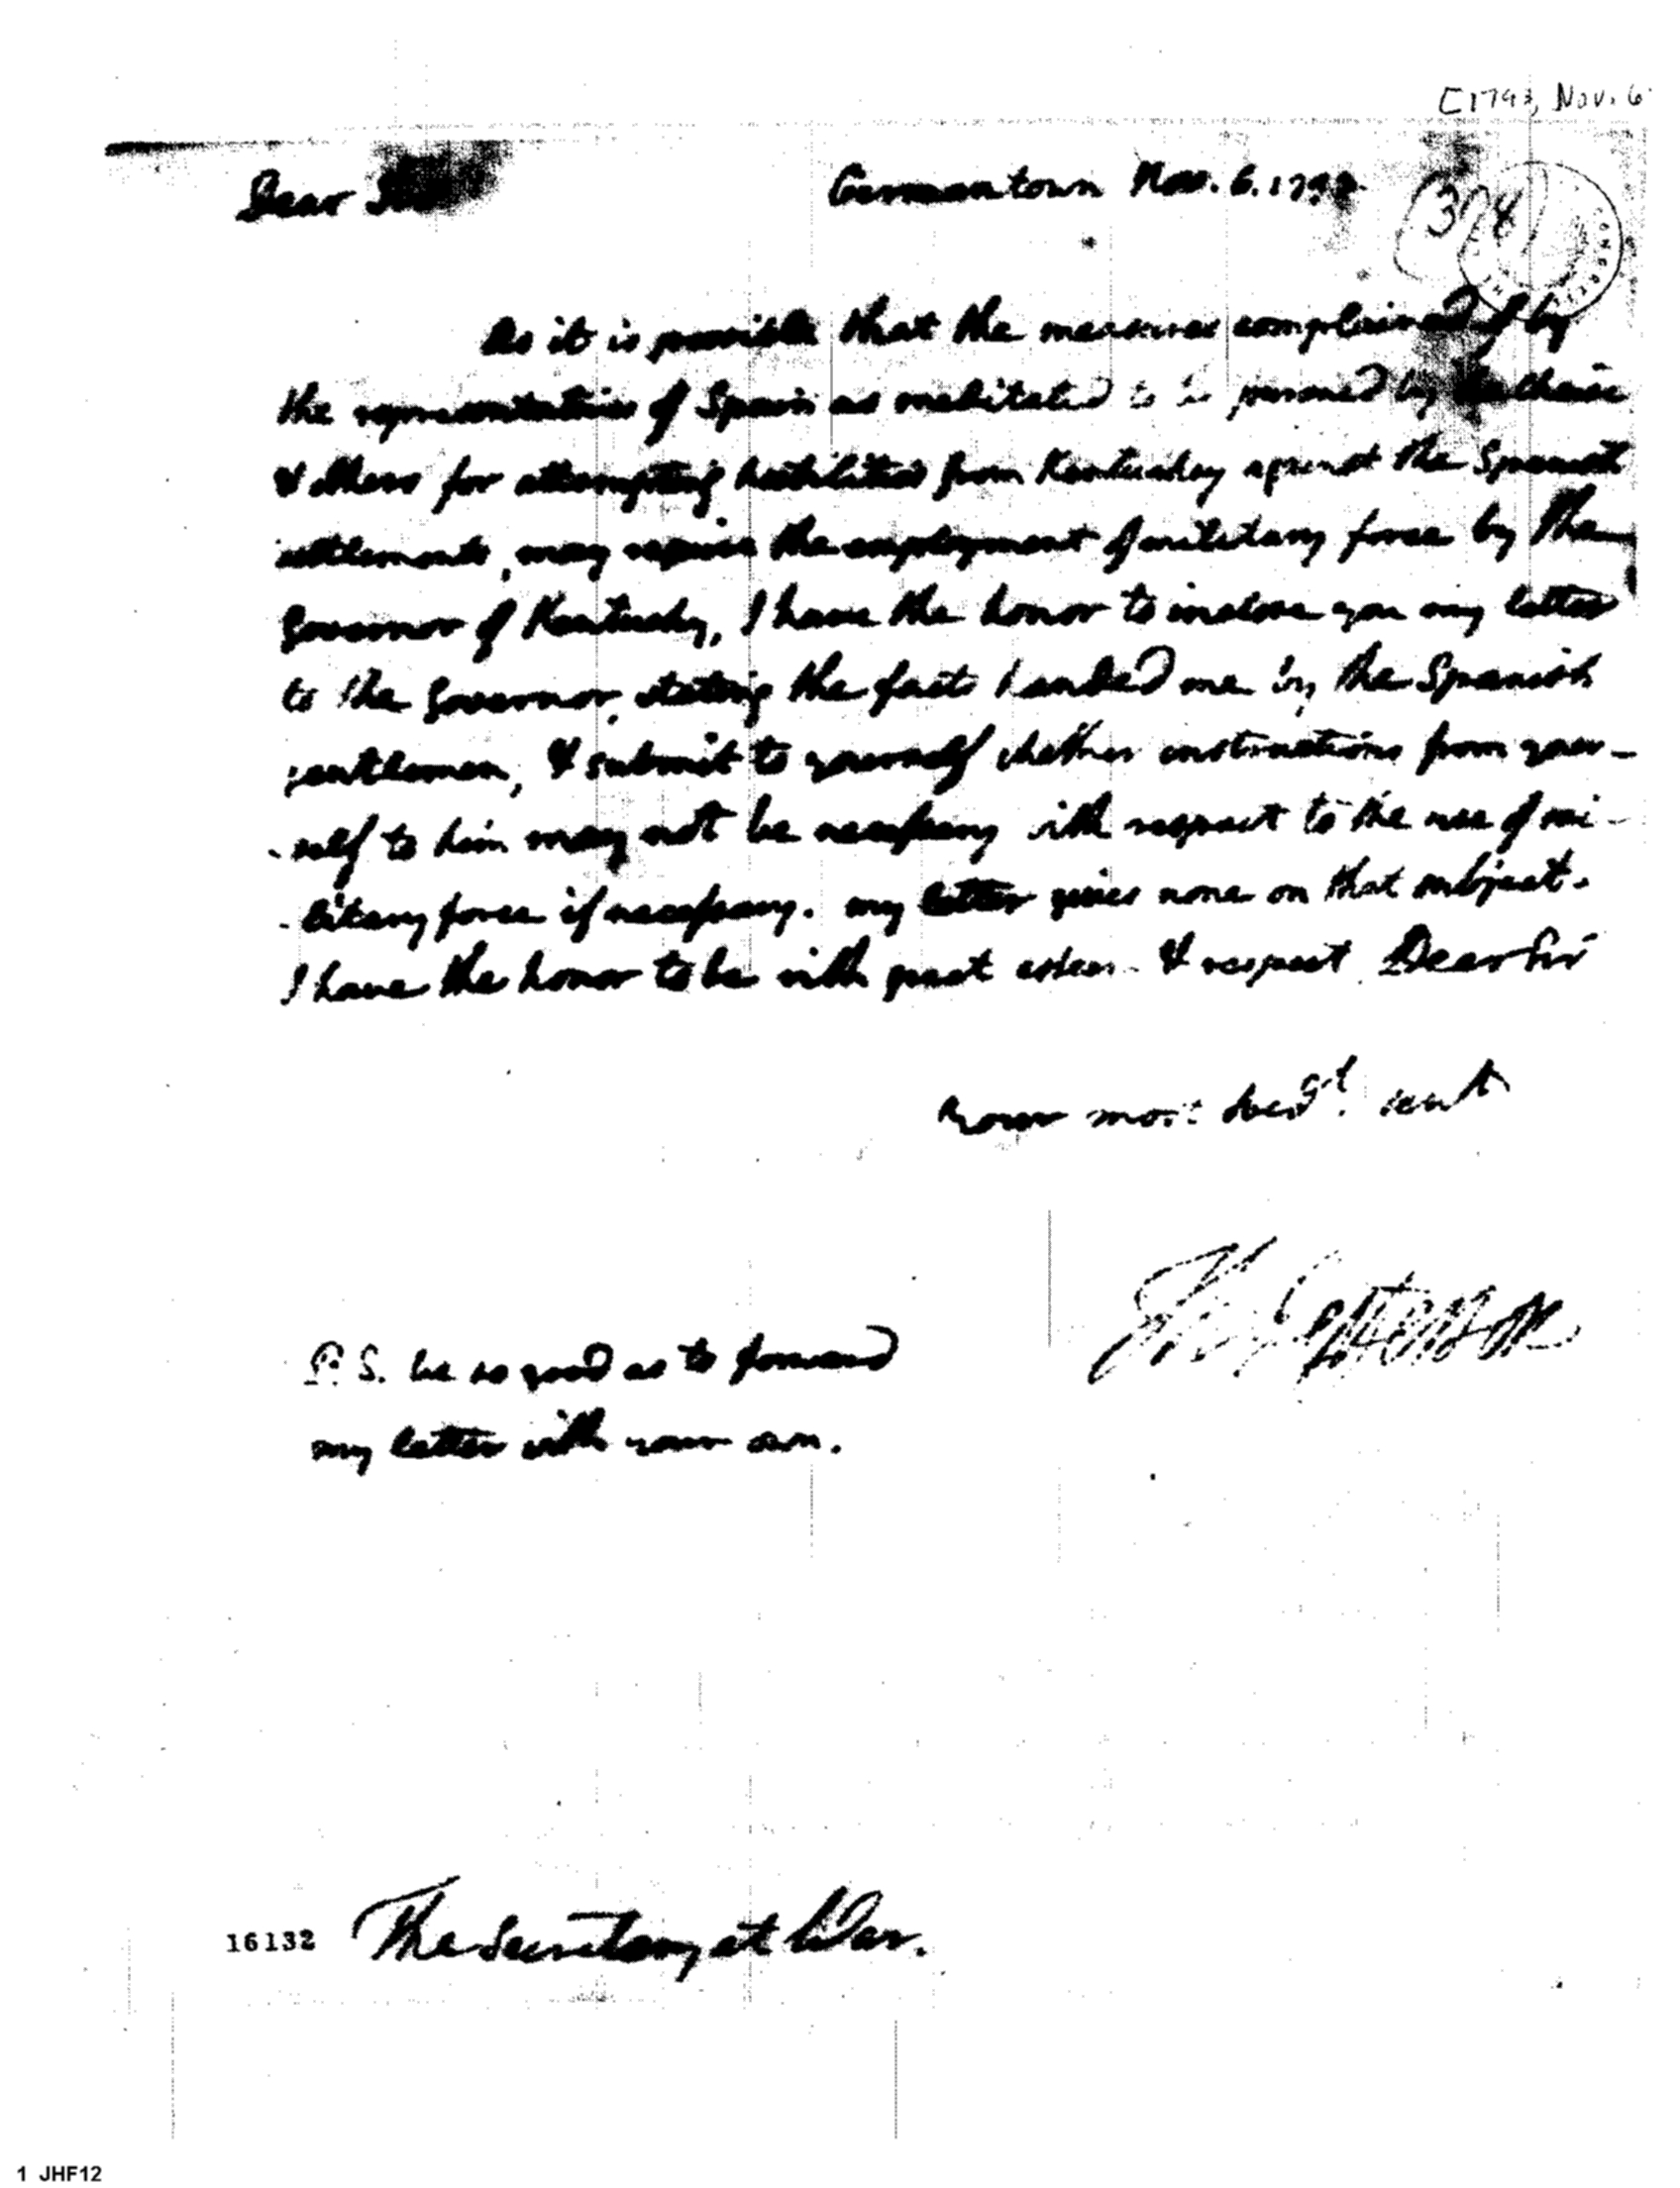 [1793, Nov. 6
Dear Germantown Nov. 6. 179
(3 8)
As it is possible that the measures complained of by
the representatives of Spain as meditated to be pursued by
& others for attempting hostilities from Kentuckey against the Spanish
settlements, may require the employment of military force by the
Governor of Kentucky, I have the honor to inclose you my letter
to the Governor, stating the facts handed me by the Spanish
gentlemen, & submit to yourself whether instructions from your-
-self to him may not be necessary with respect to the use of mi-
-litary force if necessary. my letter gives none on that subject.
I have the honor to be with great esteem & respect Dear Sir
Your most obedt. servt
Th: Jefferson
P.S. be so good as to forward
my letter with your own.
16132 The Secretary at War.
1 JHF12